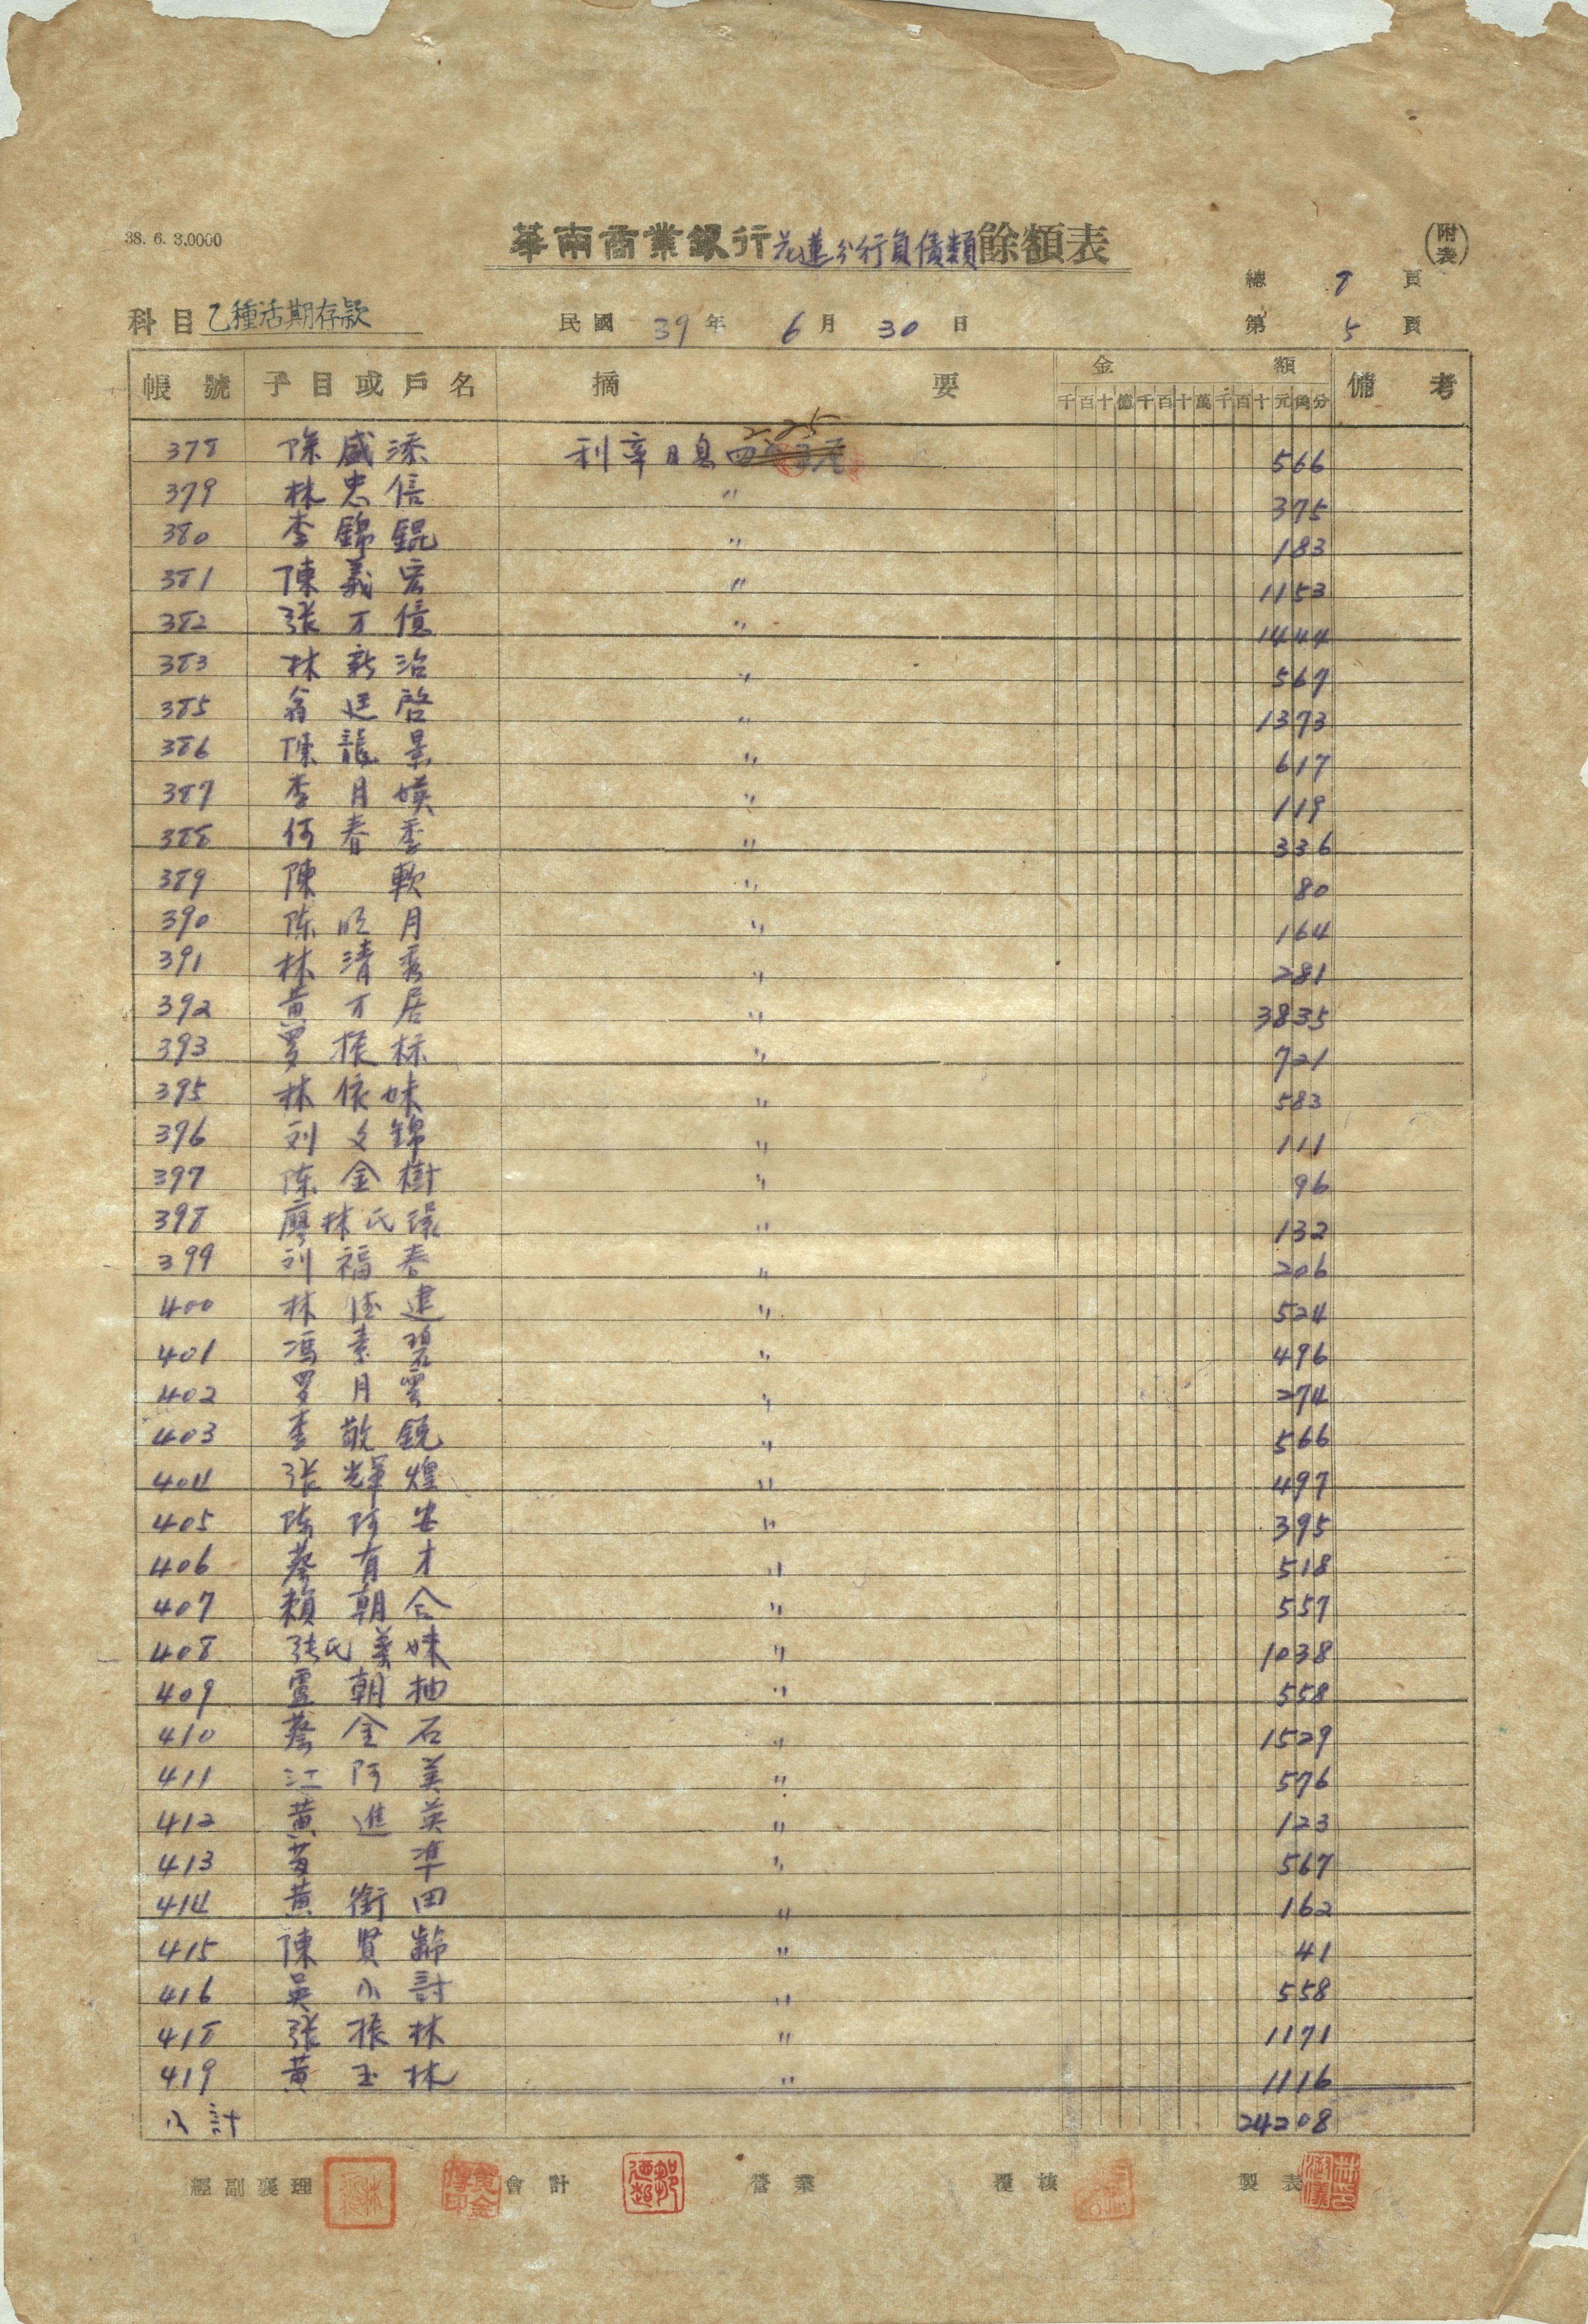 38. 6. 3.0000
華南商業銀行花蓮分行負債類餘額表
(附表)
總 8 頁
科目 乙種活期存款 民國 39 年 6 月 30 日 第 5 頁
帳號 子目或戶名 摘要 金額 備考
千百十億千百十萬千百十元角分
378 陳盛添 利率日息 225 566
379 林忠信 〃 375
380 李錦錕 〃 183
381 陳義宏 〃 1153
382 張才億 〃 1444
383 林新治 〃 567
385 翁廷啓 〃 1373
386 陳龍景 〃 617
387 李月嬌 〃 119
388 何春季 〃 336
389 陳軟 〃 80
390 陈明月 〃 164
391 林清秀 〃 281
392 黃才居 〃 3835
393 罗振标 〃 721
395 林依妹 〃 583
396 刘文錦 〃 111
397 陈金樹 〃 96
398 廖林氏 〃 132
399 刘福春 〃 206
400 林德建 〃 524
401 馮素碧 〃 496
402 罗月雲 〃 274
403 李敬銳 〃 566
404 張輝煌 〃 497
405 陈阿安 〃 395
406 蔡有才 〃 518
407 賴朝合 〃 557
408 張氏美妹 〃 1038
409 盧朝抽 〃 558
410 蔡金石 〃 1529
411 江阿美 〃 576
412 黃進英 〃 123
413 準 〃 567
414 黃衛田 〃 162
415 陳賢齡 〃 41
416 吳小討 〃 558
418 張振林 〃 1171
419 黃玉林 〃 1116
小計 24208
經副襄理 會計 營業 覆核 製表